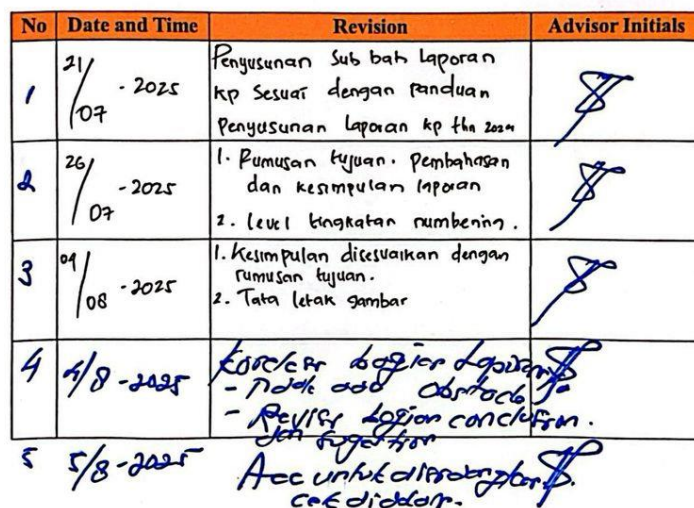 No Date and Time Revision Advisor Initials
1 21/07 - 2025 Penyusunan Sub bab Laporan
KP Sesuai dengan panduan
Penyusunan Laporan KP thn 2024
2 26/07 - 2025 1. Rumusan tujuan. pembahasan
dan kesimpulan laporan
2. Level tingkatan numbering.
3 04/08 - 2025 1. Kesimpulan disesuaikan dengan
rumusan tujuan.
2. Tata letak gambar
4 4/8 - 2025 bagian
- Tidak ada
- Revisi bagian conclusion.
dan
5 5/8 - 2025 Acc untuk
cek